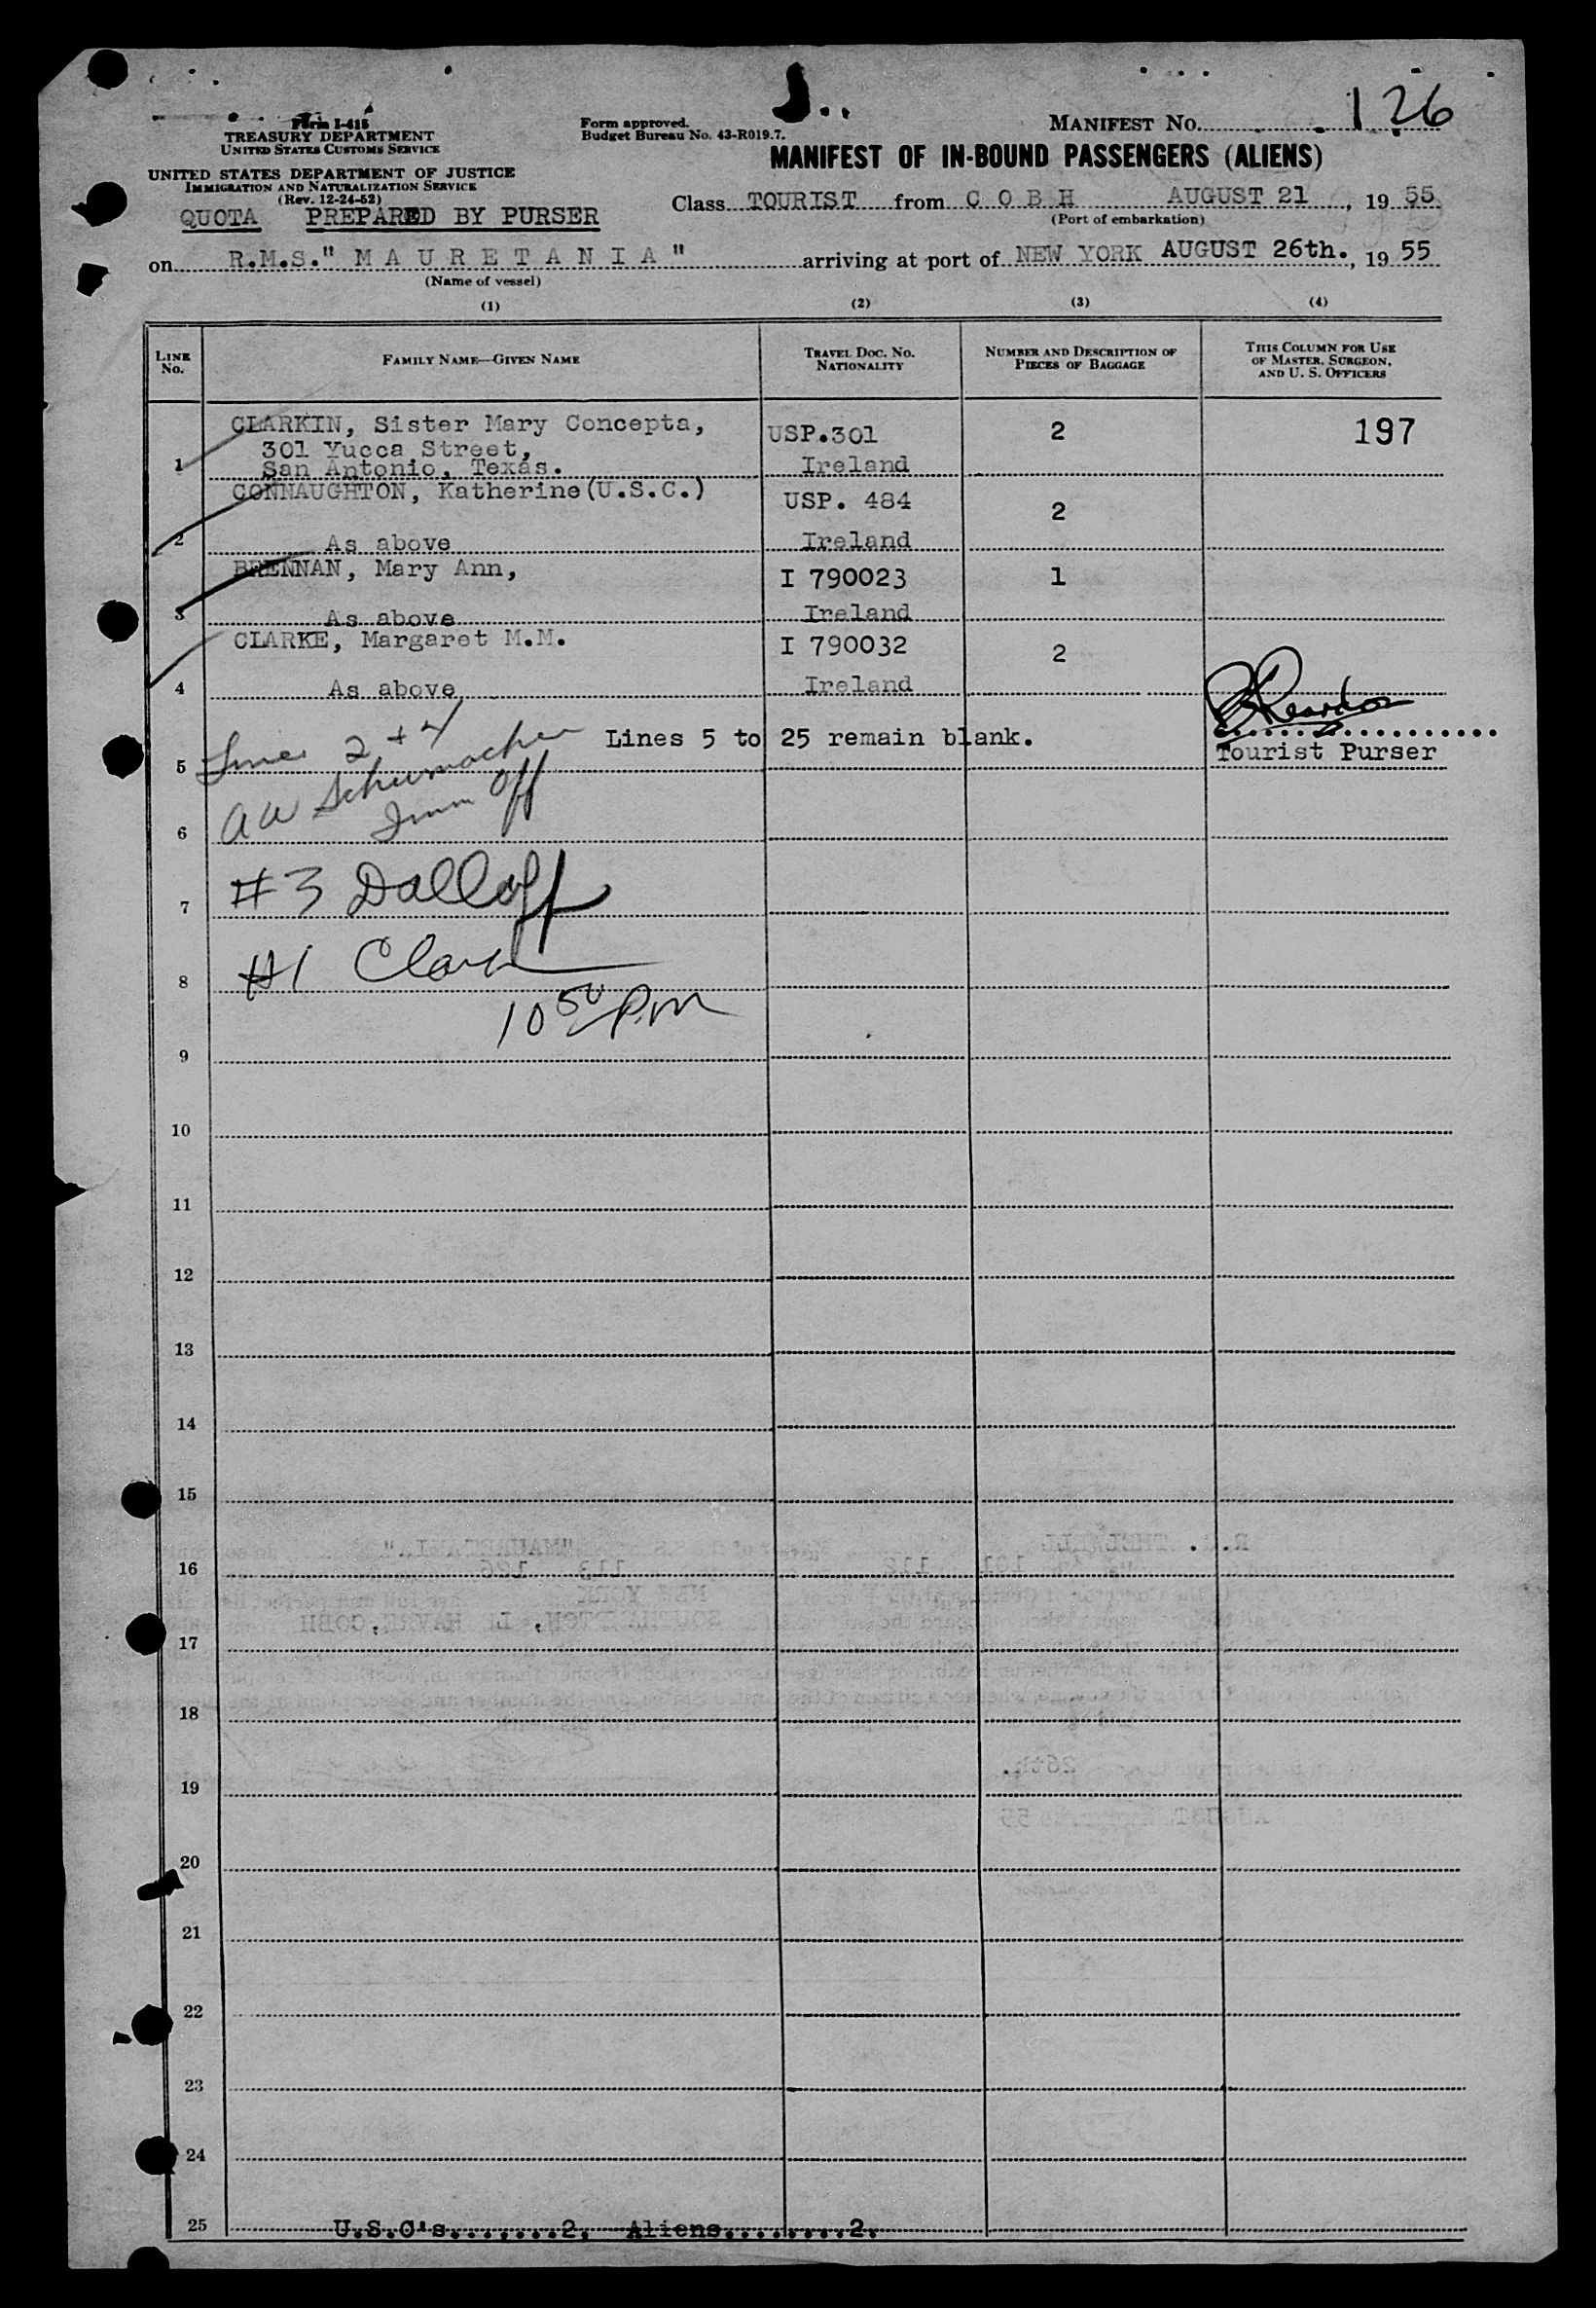 Form I-418
TREASURY DEPARTMENT
UNITED STATES CUSTOMS SERVICE
UNITED STATES DEPARTMENT OF JUSTICE
IMMIGRATION AND NATURALIZATION SERVICE
(Rev. 12-24-52)
QUOTA PREPARED BY PURSER
Form approved.
Budget Bureau No. 43-R019.7.
MANIFEST NO. 126
MANIFEST OF IN-BOUND PASSENGERS (ALIENS)
Class TOURIST from C O B H AUGUST 21, 19 55
(Port of embarkation)
on R.M.S." M A U R E T A N I A " arriving at port of NEW YORK AUGUST 26th., 19 55
(Name of vessel)
(1) (2) (3) (4)
LINE No.
FAMILY NAME—GIVEN NAME
TRAVEL DOC. NO. NATIONALITY
NUMBER AND DESCRIPTION OF PIECES OF BAGGAGE
THIS COLUMN FOR USE OF MASTER, SURGEON, AND U. S. OFFICERS
CLARKIN, Sister Mary Concepta, USP.301 2 197
301 Yucca Street,
1 San Antonio, Texas. Ireland
CONNAUGHTON, Katherine(U.S.C.) USP. 484 2
2 As above Ireland
BRENNAN, Mary Ann, I 790023 1
3 As above Ireland
CLARKE, Margaret M.M. I 790032 2
4 As above Ireland
Lines 2 + 4
Lines 5 to 25 remain blank.
Tourist Purser
5
A W Schumacher
Imm Off
6
#3 Dalloff
7
#1 Clark
8
10 50 PM
9
10
11
12
13
14
15
16
17
18
19
20
21
22
23
24
25 U.S.C's.......2. Aliens........2.